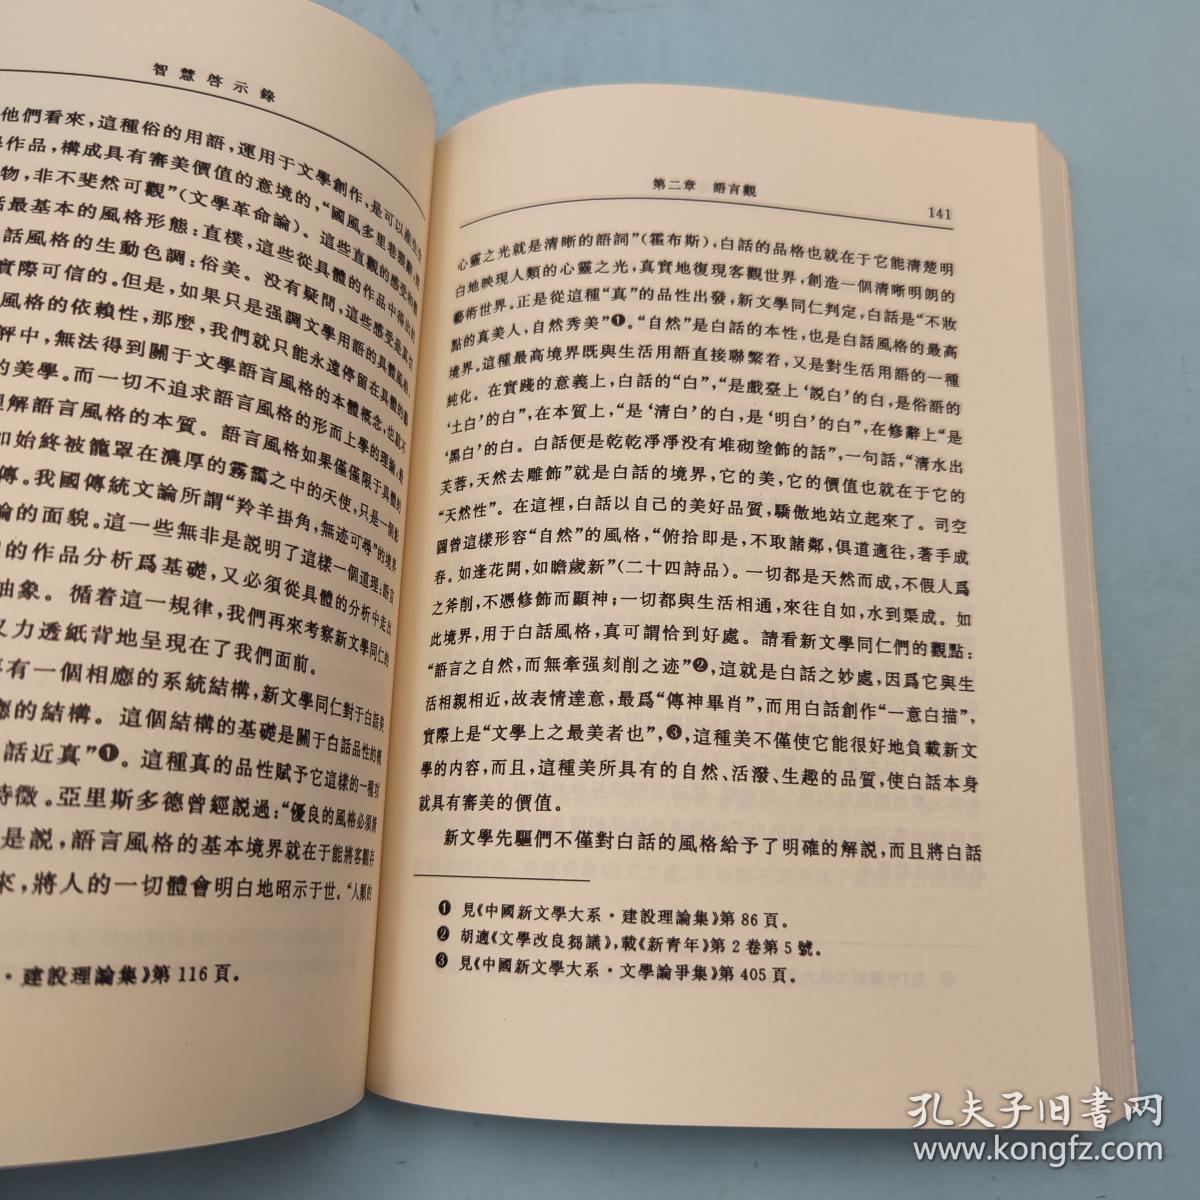 智慧啓示錄
他們看來,這種俗的用語,運用于文學創作,是可以產生
作品,構成具有審美價值的意境的,“國風多里巷
物,非不斐然可觀”(文學革命論)。這些直觀的感受和
話最基本的風格形態:直樸,這些從具體的作品中得出的
話風格的生動色調:俗美。没有疑問,這些感受是真切
實際可信的。但是,如果只是强調文學用語的具體風格
風格的依賴性,那麼,我們就只能永遠停留在具體的
評中,無法得到關于文學語言風格的本體概念,也就不
的美學。而一切不追求語言風格的形而上學的理論,
理解語言風格的本質。語言風格如果僅僅限于具體的
如始終被籠罩在濃厚的霧靄之中的天使,只是一個
傳。我國傳統文論所謂“羚羊掛角,無迹可尋”的境界
論的面貌。這一些無非是説明了這樣一個道理:語言
的作品分析爲基礎,又必須從具體的分析中走出
抽象。循着這一規律,我們再來考察新文學同仁的
又力透紙背地呈現在了我們面前。
有一個相應的系統結構,新文學同仁對于白話美
應的結構。這個結構的基礎是關于白話品性的概
話近真”❶。這種真的品性賦予它這樣的一種功
特徵。亞里斯多德曾經説過:“優良的風格必須將
是説,語言風格的基本境界就在于能將客觀存
來,將人的一切體會明白地昭示于世。“人類的
·建設理論集》第116頁。
第二章 語言觀
141
心靈之光就是清晰的語詞”(霍布斯),白話的品格也就在于它能清楚明
白地映現人類的心靈之光,真實地復現客觀世界,創造一個清晰明朗的
藝術世界。正是從這種“真”的品性出發,新文學同仁判定,白話是“不妝
點的真美人,自然秀美”❶。“自然”是白話的本性,也是白話風格的最高
境界。這種最高境界既與生活用語直接聯繫着,又是對生活用語的一種
純化。在實踐的意義上,白話的“白”,“是戲臺上‘説白’的白,是俗語的
‘土白’的白”,在本質上,“是‘清白’的白,是‘明白’的白”,在修辭上“是
‘黑白’的白。白話便是乾乾凈凈没有堆砌塗飾的話”,一句話,“清水出
芙蓉,天然去雕飾”就是白話的境界,它的美,它的價值也就在于它的
“天然性”。在這裡,白話以自己的美好品質,驕傲地站立起來了。司空
圖曾這樣形容“自然”的風格,“俯拾即是,不取諸鄰,俱道適往,著手成
春。如逢花開,如瞻歲新”(二十四詩品)。一切都是天然而成,不假人爲
之斧削,不憑修飾而顯神;一切都與生活相通,來往自如,水到渠成。如
此境界,用于白話風格,真可謂恰到好處。請看新文學同仁們的觀點:
“語言之自然,而無牽强刻削之迹”❷,這就是白話之妙處,因爲它與生
活相親相近,故表情達意,最爲“傳神畢肖”,而用白話創作“一意白描”,
實際上是“文學上之最美者也”,❸,這種美不僅使它能很好地負載新文
學的内容,而且,這種美所具有的自然、活潑、生趣的品質,使白話本身
就具有審美的價值。
新文學先驅們不僅對白話的風格給予了明確的解説,而且將白話
❶ 見《中國新文學大系·建設理論集》第86頁。
❷ 胡適《文學改良芻議》,載《新青年》第2卷第5號。
❸ 見《中國新文學大系·文學論爭集》第405頁。
孔夫子旧书网
www.kongfz.com